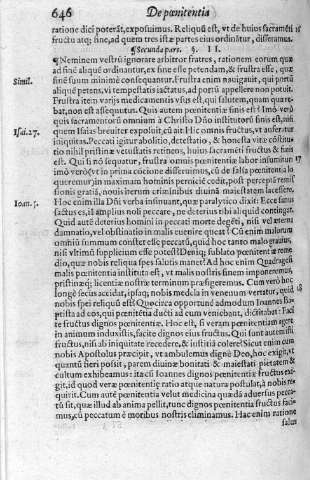 646 De pœnitentia
ratione dici poterãt, exposuimus. Reliquũ est, vt de huius sacramẽti 18
fructu atq; fine, ad quem tres istæ partes eius ordinãtur, disseramus.
¶ Secunda pars. §. II.
¶ Neminem vestrũ ignorare arbitror fratres, rationem eorum quæ
Simil. ad finẽ aliquẽ ordinantur, ex fine esse petendam, & frustra esse, quæ
finẽ suum minimè consequantur. Frustra enim nauigauit, qui portũ
aliquẽ petens, vi tempestatis iactatus, ad portũ appellere non potuit.
Frustra item varijs medicamentis vsus est, qui salutem, quam quære-
bat, non est assequutus. Quis autem pœnitentiæ finis est? Imò verò
quis sacramentorũ omnium à Christo Dño institutorũ finis est, nisi
Isai. 27. quem Isaias breuiter exposuit, cũ ait Hic omnis fructus, vt auferatur
iniquitas. Peccati igitur abolitio, detestatio, & honesta vitæ cõstitu-
tio nihil pristinæ vetustatis retinens, huius sacramẽti fructus & finis
est. Qui si nõ sequatur, frustra omnis pœnitentiæ labor insumitur: 17
imò verò (vt in prima cõcione diximus, cũ de falsa pœnitentia lo
queremur) in maximam hominis perniciẽ cedit, post perceptã remis
sionis gratiã, nouis iterum criminibus diuinã maiestatem lacessere.
Ioan. 5. Hoc enim illa Dñi verba insinuant, quæ paralytico dixit: Ecce sanus
factus es, iã amplius noli peccare, ne deterius tibi aliquid contingat.
Quid autẽ deterius homini in peccati morte degẽti, nisi vel æterna
damnatio, vel obstinatio in malis euenire queat? Cũ enim malorum
omniũ summum constet esse peccatũ, quid hoc tanto malo grauius,
nisi vltimũ supplicium esse potest? Deniq; sublato pœnitentiæ reme
dio, quæ nobis reliqua spes salutis manet? Ad hoc enim Quadrages
malis pœnitentia instituta est, vt malis nostris finem imponeremus,
pristinæq; licentiæ nostræ terminum præfigeremus. Cum verò hoc
longè secius accidat, ipsaq; nobis medela in venenum vertatur, quid 18
nobis spei reliquũ est? Quocirca opportunè admodum Ioannes Ba-
ptista ad eos, qui pœnitẽtia ducti ad eum veniebant, dictitabat: Faci
te fructus dignos pœnitentiæ. Hoc est, si veram pœnitentiam agere
in animum induxistis, facite dignos eius fructus. Qui sunt autem isti
fructus, nisi ab iniquitate recedere, & iustitiã colere? Sicut enim cum
nobis Apostolus præcipit, vt ambulemus dignè Deo, hoc exigit, vt
quantũ fieri possit, parem diuinæ bonitati & maiestati pietatem &
cultum exhibeamus: ita cũ Ioannes dignos pœnitentiæ fructus exi-
git, id quod veræ pœnitentiæ ratio atque natura postulat, à nobis re-
quirit. Cum autẽ pœnitentia velut medicina quædã aduersus pecca-
tũ sit, quæ illud ab anima pellit, tunc dignos pœnitentiæ fructus faci-
mus, cũ peccatum è moribus nostris eliminamus. Hac enim ratione
salus